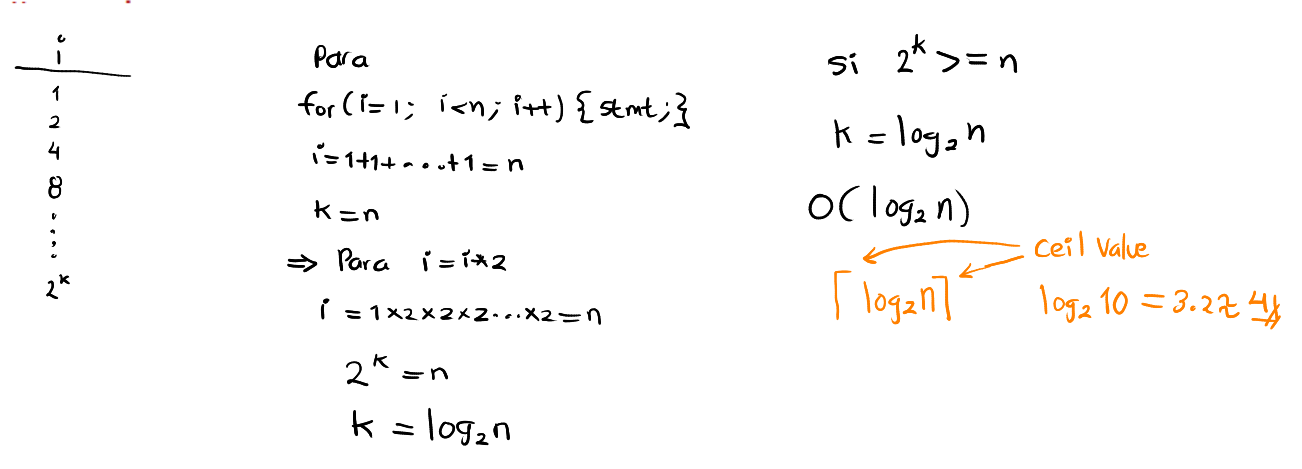 i
1
2
4
8
⋮
2^k
Para
for(i=1; i<n; i++) {stmt;}
i=1+1+...+1=n
k=n
⇒ Para i=i*2
i=1×2×2×2...×2=n
2^k=n
k=log₂n
si 2^k >= n
k=log₂n
O(log₂n)
ceil value
⌈log₂n⌉
log₂10=3.2